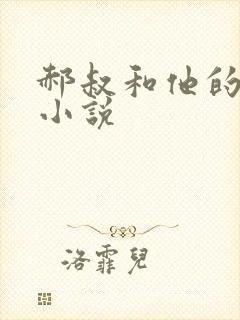 郝叔和他的
小說
洛霏兒